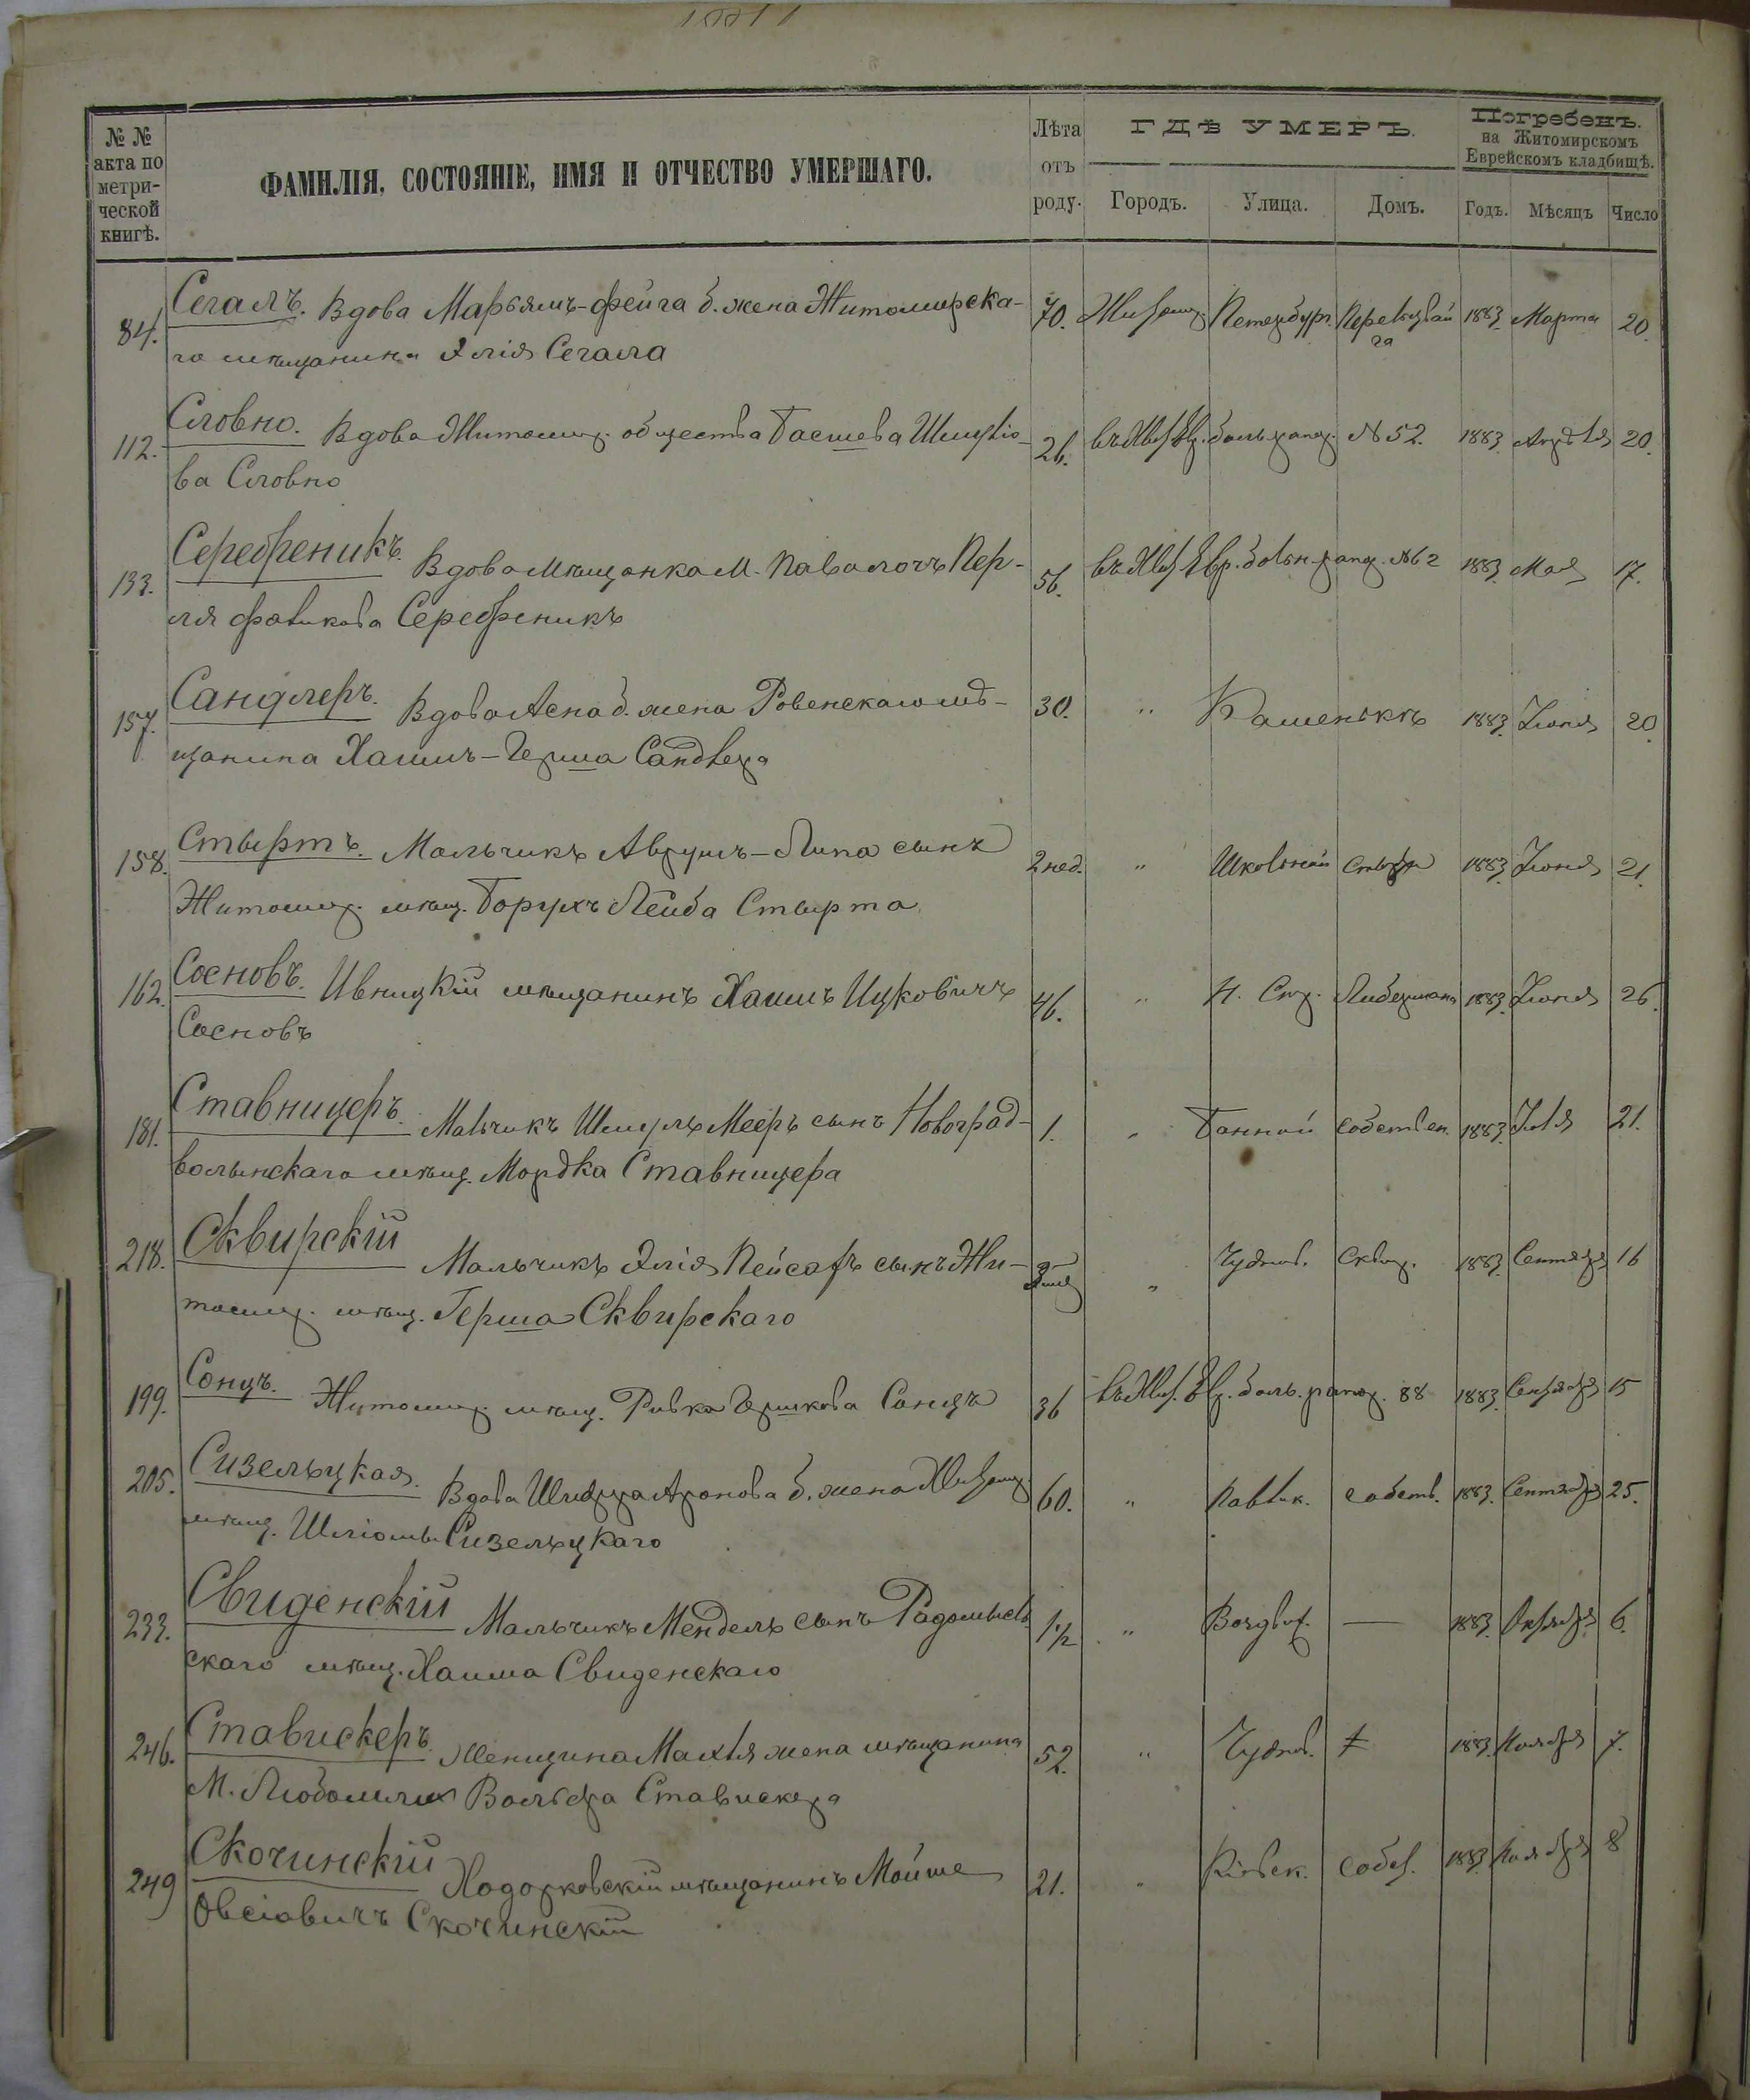 № №
акта по
метри-
ческой
книгѣ.
ФАМИЛІЯ, СОСТОЯНІЕ, ИМЯ И ОТЧЕСТВО УМЕРШАГО.
Лѣта
отъ
роду.
ГДѢ УМЕРЪ.
Городъ. Улица. Домъ.
Погребенъ.
на Житомирскомъ
Еврейскомъ кладбищѣ.
Годъ. Мѣсяцъ Число
84. Сегалъ. Вдова Марьямъ-Фейга б. жена Житомирска- 70. Житомир. Петербург. 1883. Марта 20.
го мѣщанина Эліи Сегала
112. Словно. Вдова Житомир. общества Басшева 26. № 52. 1883. Апрѣля 20.
ва Словно
133. Серебреникъ. Вдова мѣщанка М. Паволочъ Пер- 56. въ Жит. Евр. больн. рапор. № 62 1883 Мая 17.
ля Файкова Серебреникъ
157. Сандлеръ. Вдова Асна б. жена Ровенскаго мѣ- 30. " Каменкѣ 1883. Іюня 20.
щанина Хаимъ-Герша Сандлера
158. Стыртъ. Мальчикъ Аврумъ-Липа сынъ 2 нед. " Школьной Стырт 1883. Іюня 21.
Житомир. мѣщ. Борухъ Лейба Стырта
162. Сосновъ. Ивницкій мѣщанинъ Хаимъ Ицковичъ 46. " Либермана 1883. Іюня 26.
Сосновъ
181. Ставницеръ. Мальчикъ Шмуль Мееръ сынъ Новоград- 1. " Банной собствен. 1883. Іюля 21.
волынскаго мѣщ. Мордка Ставницера
218. Сквирскій Мальчикъ Элія Пейсахъ сынъ Жи- " Чуднов. Сквир. 1883. Сентября 16
томир. мѣщ. Герша Сквирскаго
199. Сонцъ. Житомир. мѣщ. Ривка Гершкова Сонцъ 36 въ Жит. Евр. боль. рапор. 88 1883. Сентября 15
205. Сизельцкая. Вдова Аронова б. жена Житомир. 60. " Павлик. собств. 1883. Сентября 25.
мѣщ. Шліомы Сизельцкаго
233. Свиденскій Мальчикъ Мендель сынъ Радомысль- 1 1/2 " — 1883. Октября 6.
скаго мѣщ. Хаима Свиденскаго
246. Ставискеръ. Женщина Махля жена мѣщанина 52. " Чуднов. 1883. Ноября 7.
М. Любомля Вольфа Ставискера
249 Скочинскій Ходорковскій мѣщанинъ Мойше 21. " Кіевск. собст. 1883. Ноября 8
Овсіовичъ Скочинскій